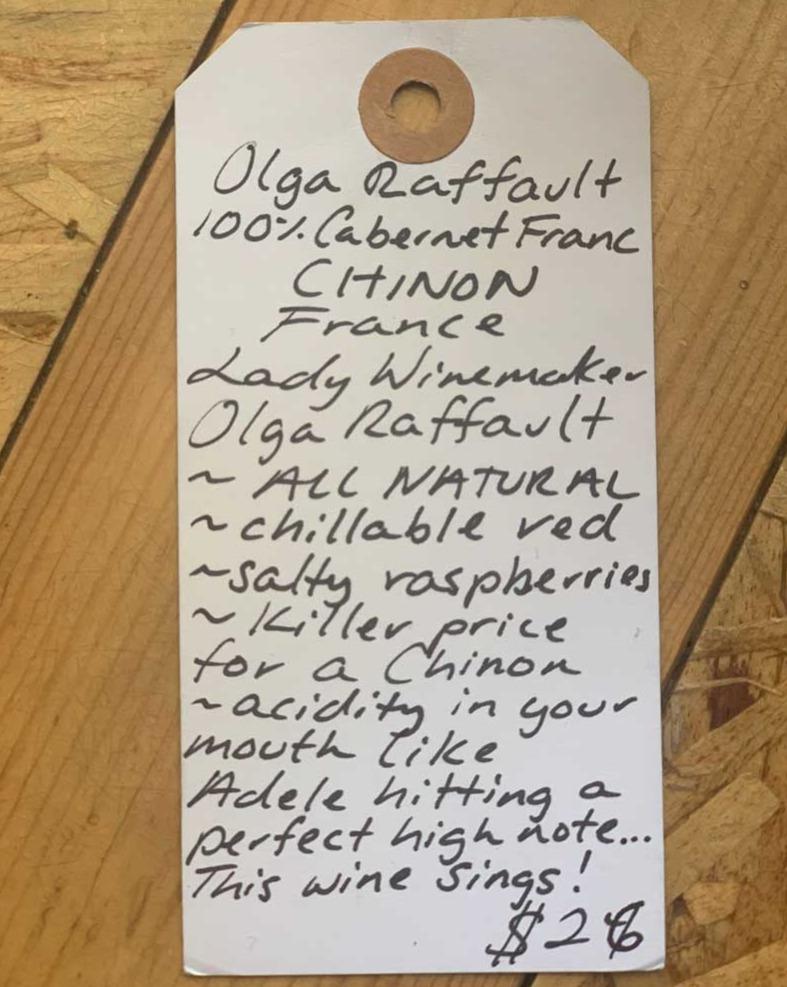 Olga Raffault
100% Cabernet Franc
CHINON
France
Lady Winemaker
Olga Raffault
~ ALL NATURAL
~chillable red
~salty raspberries
~ Killer price
for a Chinon
~acidity in your
mouth like
Adele hitting a
perfect high note...
This wine sings!